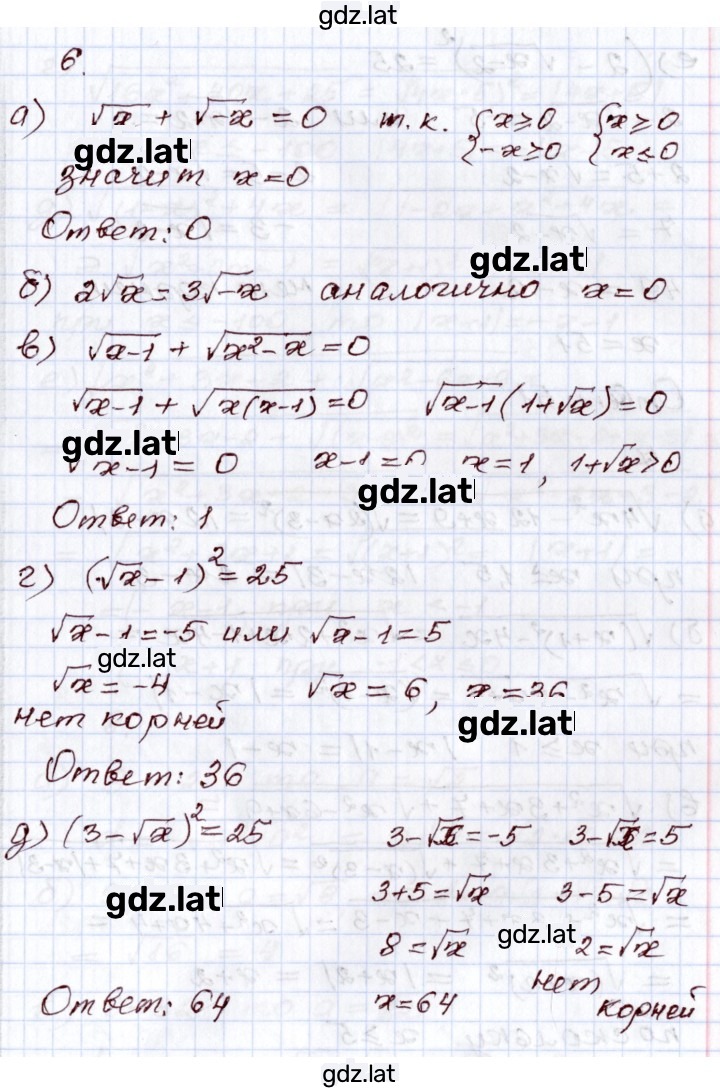 gdz.lat
6.
а) √x + √-x = 0 т.к. {x ≥ 0 {x ≥ 0
{-x ≥ 0 {x ≤ 0
gdz.lat
значит x = 0
Ответ: 0
gdz.lat
б) 2√x = 3√-x аналогично x = 0
в) √(x-1) + √(x²-x) = 0
√(x-1) + √(x(x-1)) = 0 √(x-1) (1+√x) = 0
gdz.lat
√(x-1) = 0 x-1=0 x=1, 1+√x>0
gdz.lat
Ответ: 1
г) (√x - 1)² = 25
√x - 1 = -5 или √x - 1 = 5
gdz.lat
√x = -4 √x = 6, x = 36
нет корней
gdz.lat
Ответ: 36
д) (3-√x)² = 25 3-√x = -5 3-√x = 5
3+5 = √x 3-5 = √x
gdz.lat
8 = √x gdz.lat 2 = √x
нет
Ответ: 64 x = 64 корней
gdz.lat